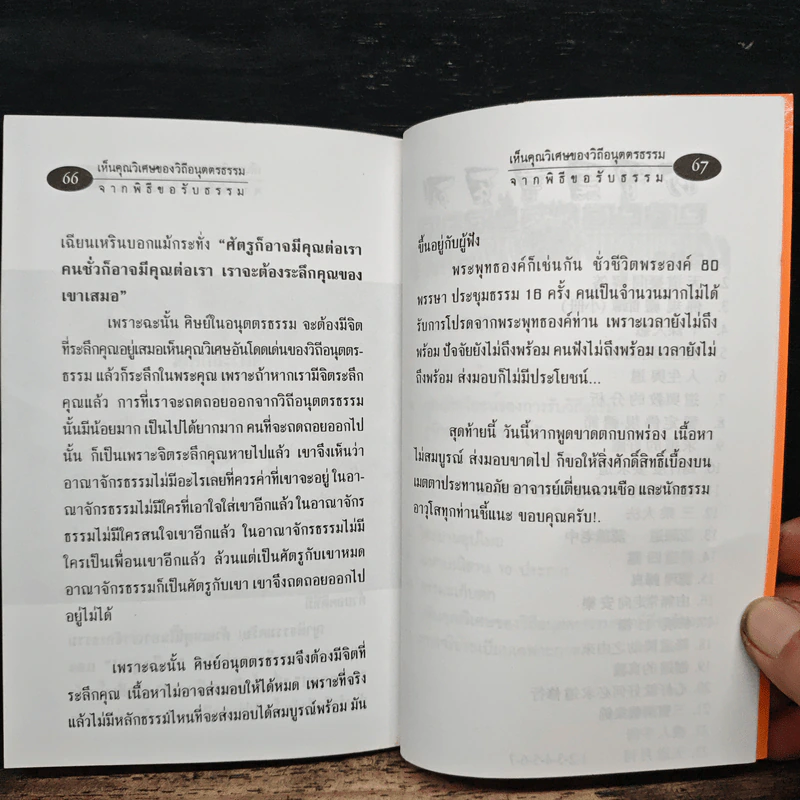 66
เห็นคุณวิเศษของวิถีอนุตตรธรรม
จากพิธีขอรับธรรม
เฉียนเหรินบอกแม้กระทั่ง “ศัตรูก็อาจมีคุณต่อเรา
คนชั่วก็อาจมีคุณต่อเรา เราจะต้องระลึกคุณของ
เขาเสมอ”
เพราะฉะนั้น ศิษย์ในอนุตตรธรรม จะต้องมีจิต
ที่ระลึกคุณอยู่เสมอเห็นคุณวิเศษอันโดดเด่นของวิถีอนุตตร-
ธรรม แล้วก็ระลึกในพระคุณ เพราะถ้าหากเรามีจิตระลึก
คุณแล้ว การที่เราจะถดถอยออกจากวิถีอนุตตรธรรม
นั้นมีน้อยมาก เป็นไปได้ยากมาก คนที่จะถดถอยออกไป
นั้น ก็เป็นเพราะจิตระลึกคุณหายไปแล้ว เขาจึงเห็นว่า
อาณาจักรธรรมไม่มีอะไรเลยที่ควรค่าที่เขาจะอยู่ ในอา-
ณาจักรธรรมไม่มีใครที่เอาใจใส่เขาอีกแล้ว ในอาณาจักร
ธรรมไม่มีใครสนใจเขาอีกแล้ว ในอาณาจักรธรรมไม่มี
ใครเป็นเพื่อนเขาอีกแล้ว ล้วนแต่เป็นศัตรูกับเขาหมด
อาณาจักรธรรมก็เป็นศัตรูกับเขา เขาจึงถดถอยออกไป
อยู่ไม่ได้
เพราะฉะนั้น ศิษย์อนุตตรธรรมจึงต้องมีจิตที่
ระลึกคุณ เนื้อหาไม่อาจส่งมอบให้ได้หมด เพราะที่จริง
แล้วไม่มีหลักธรรมไหนที่จะส่งมอบได้สมบูรณ์พร้อม มัน
เห็นคุณวิเศษของวิถีอนุตตรธรรม
จากพิธีขอรับธรรม
67
ขึ้นอยู่กับผู้ฟัง
พระพุทธองค์ก็เช่นกัน ชั่วชีวิตพระองค์ 80
พรรษา ประชุมธรรม 16 ครั้ง คนเป็นจำนวนมากไม่ได้
รับการโปรดจากพระพุทธองค์ท่าน เพราะเวลายังไม่ถึง
พร้อม ปัจจัยยังไม่ถึงพร้อม คนฟังไม่ถึงพร้อม เวลายังไม่
ถึงพร้อม ส่งมอบก็ไม่มีประโยชน์...
สุดท้ายนี้ วันนี้หากพูดขาดตกบกพร่อง เนื้อหา
ไม่สมบูรณ์ ส่งมอบขาดไป ก็ขอให้สิ่งศักดิ์สิทธิ์เบื้องบน
เมตตาประทานอภัย อาจารย์เตี่ยนฉวนซือ และนักธรรม
อาวุโสทุกท่านชี้แนะ ขอบคุณครับ!.